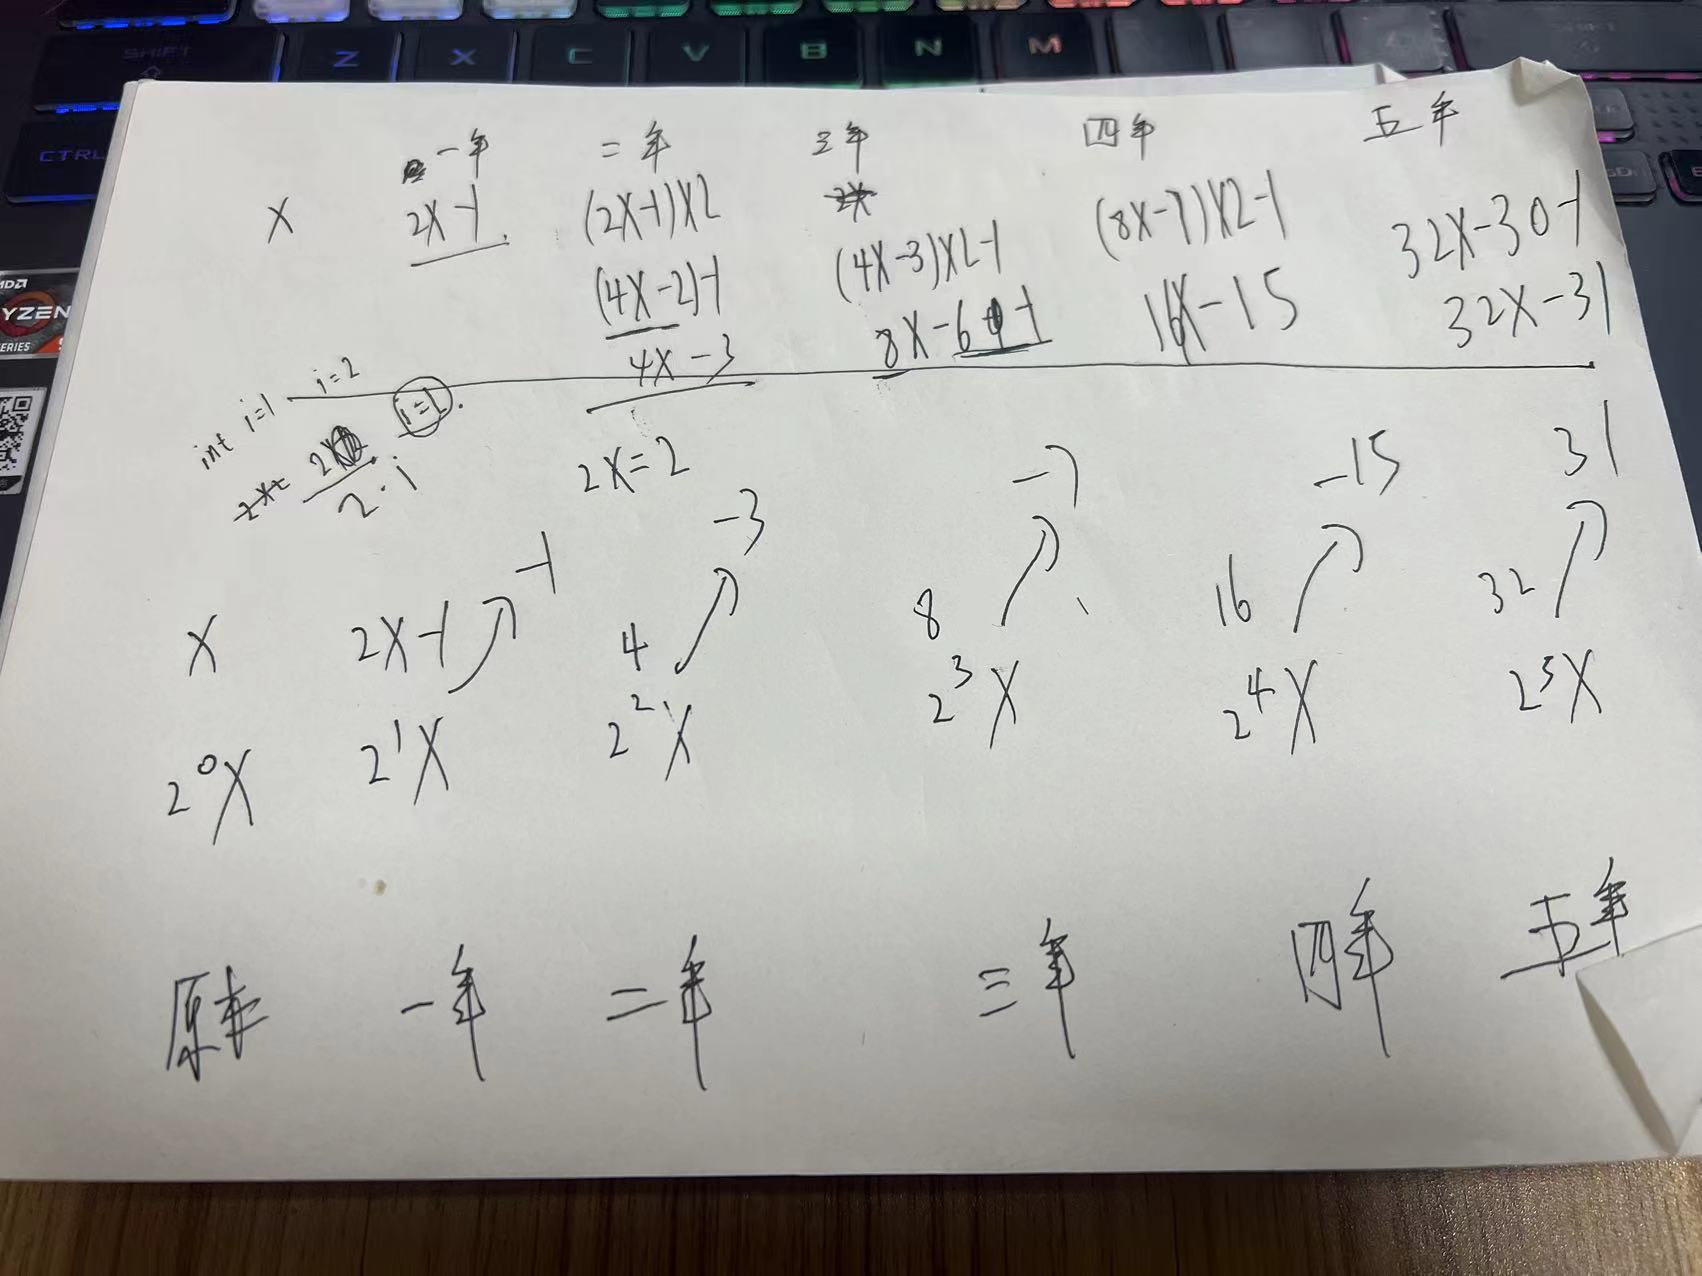 SHIFT Z X C V B N M
CTRL
AMD
RYZEN
SERIES
一年 二年 三年 四年 五年
X 2X-1 (2X-1)X2 (4X-3)X2-1 (8X-7)X2-1 32X-30-1
(4X-2)-1 8X-6-1 16X-15 32X-31
4X-3
int i=1 i=2 i=1
2·i
2X=2
-1 -3 -7 -15 31
X 2X-1 4 8 16 32
2⁰X 2¹X 2²X 2³X 2⁴X 2⁵X
原本 一年 二年 三年 四年 五年